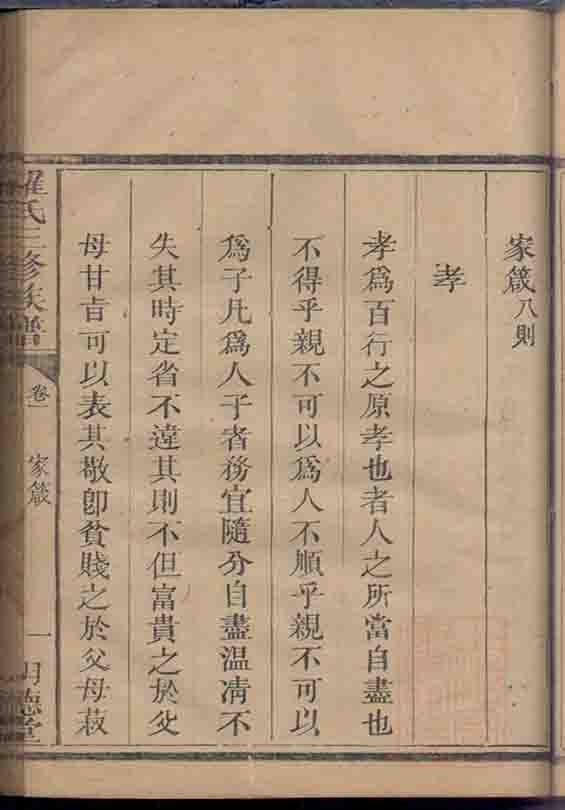 家箴八則
孝
孝爲百行之原孝也者人之所當自盡也
不得乎親不可以爲人不順乎親不可以
爲子凡爲人子者務宜隨分自盡温凊不
失其時定省不違其則不但富貴之於父
母甘旨可以表其敬卽貧賤之於父母菽
羅氏三修族譜
卷一
家箴
一
明德堂